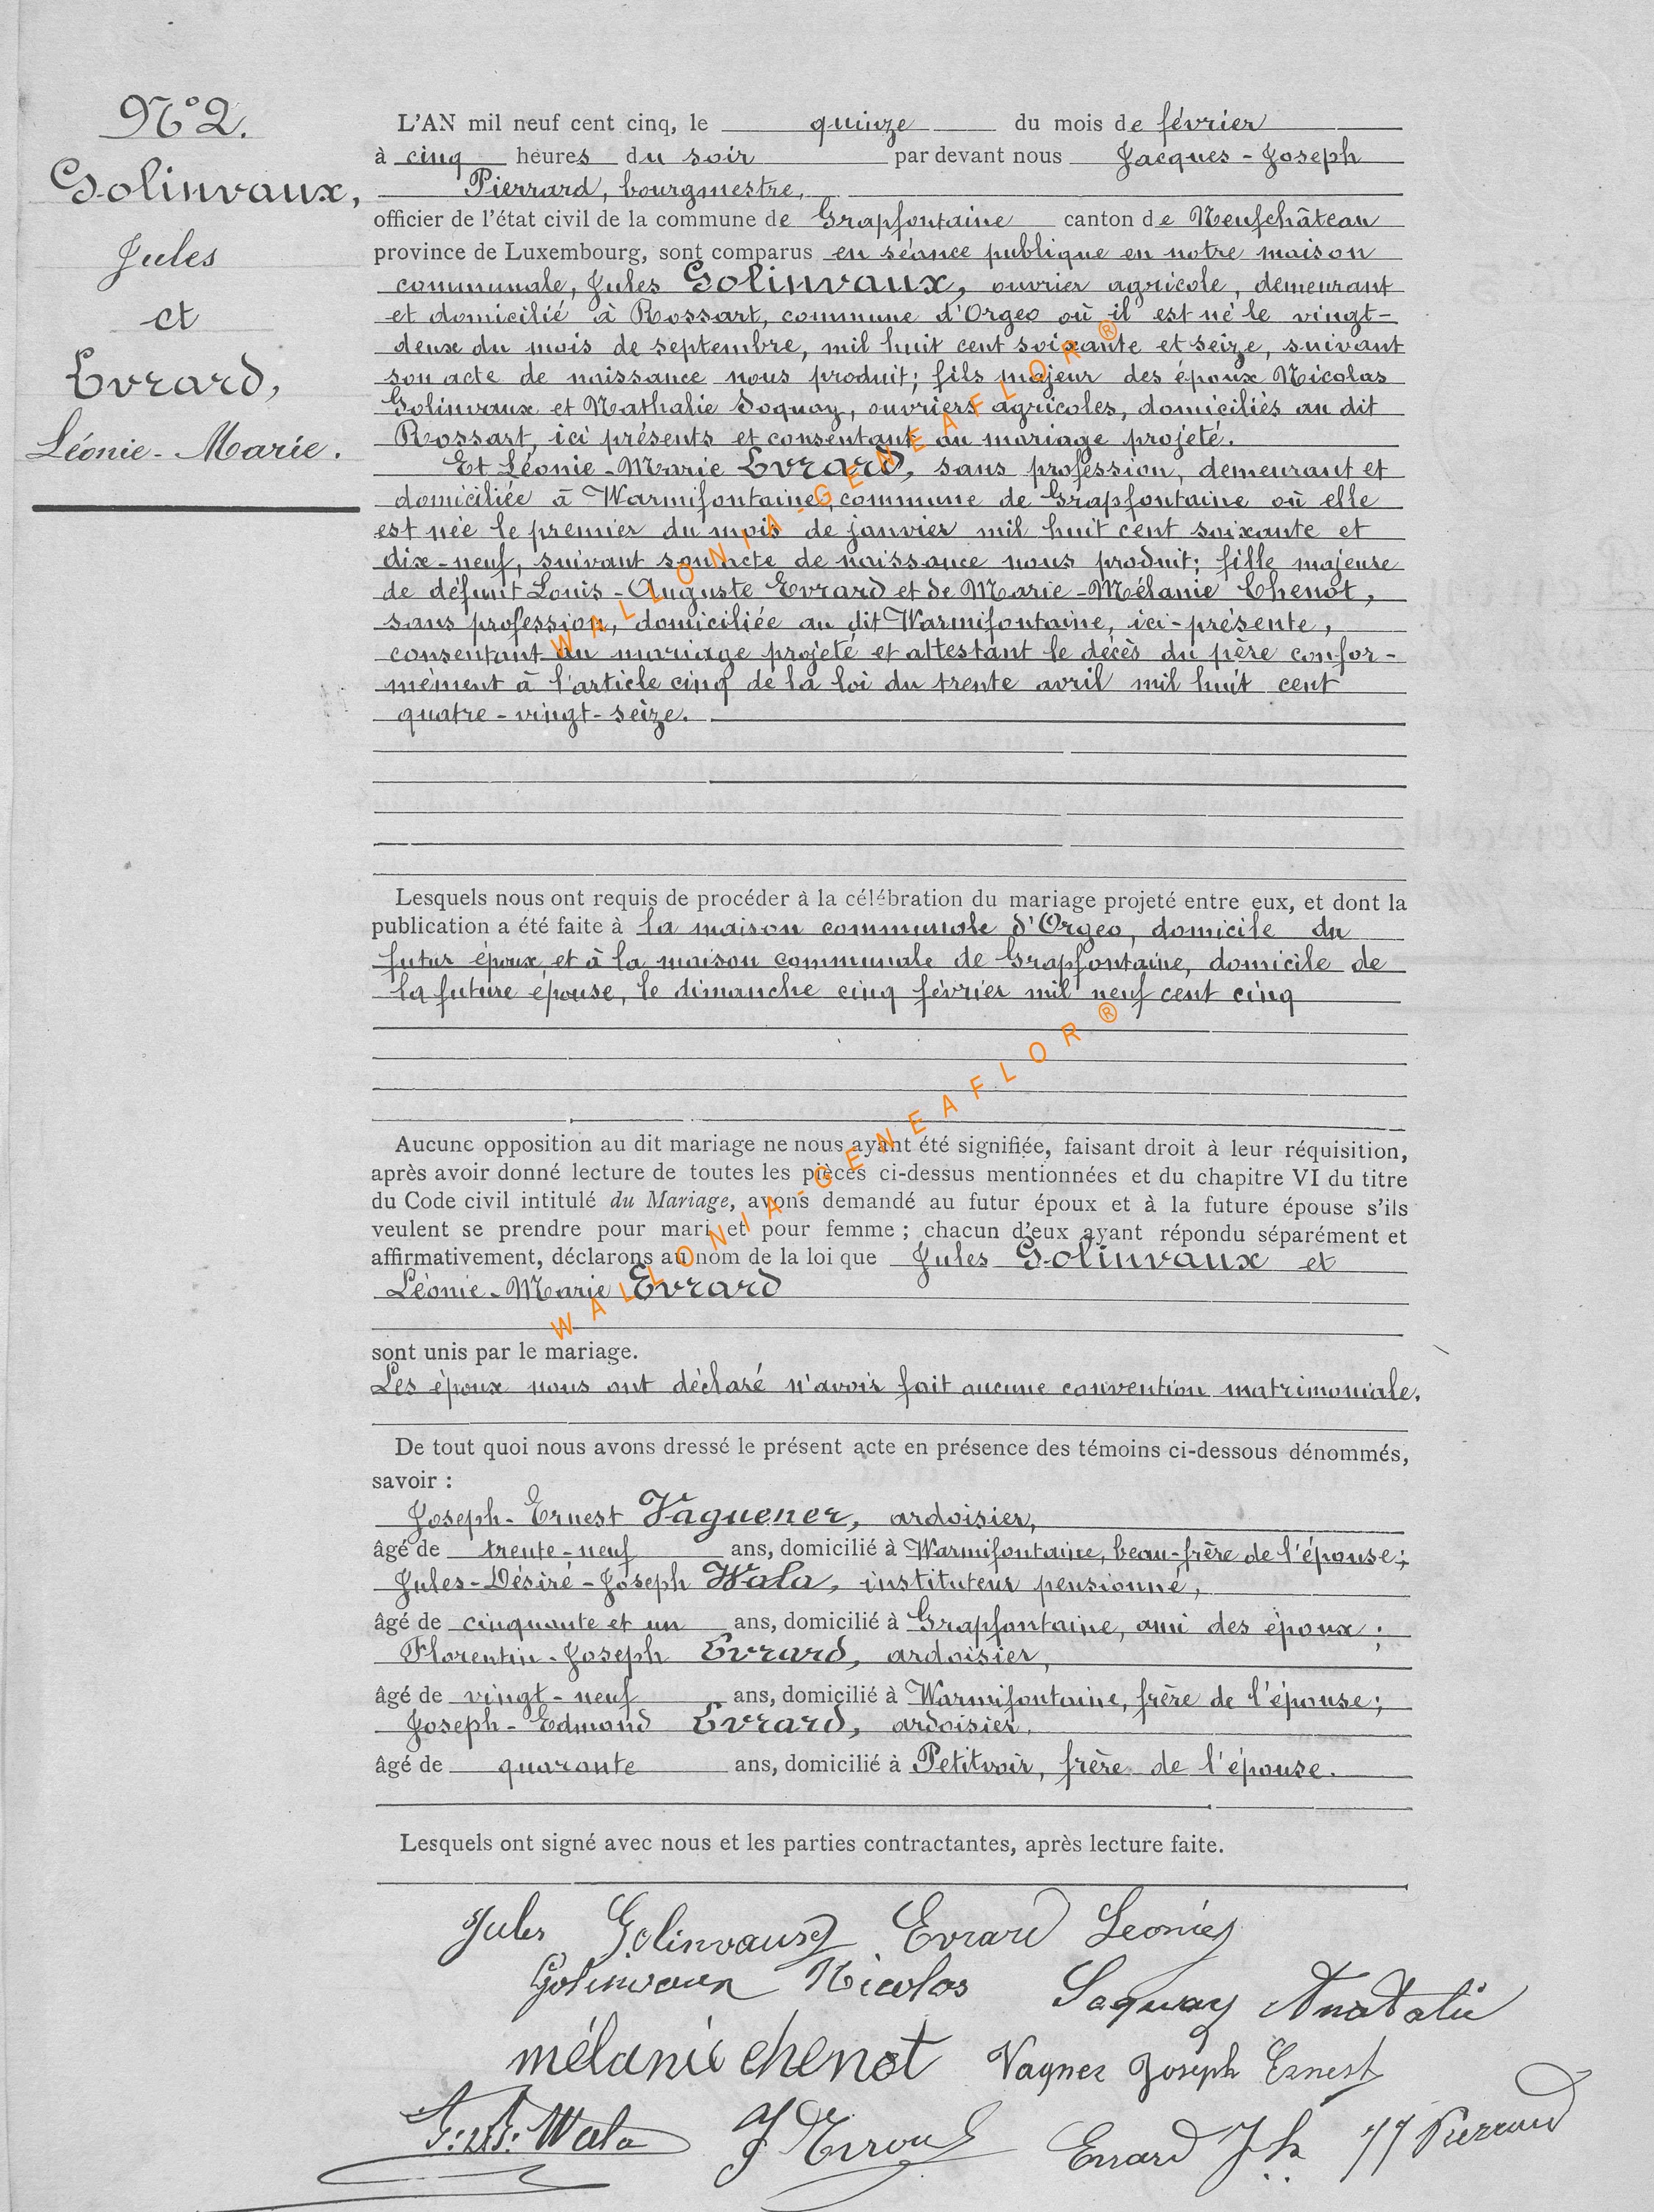 N° 2.
Golinvaux,
Jules
et
Evrard,
Léonie-Marie.
L'AN mil neuf cent cinq, le quinze du mois de février
à cinq heures du soir par devant nous Jacques-Joseph
Pierrard, bourgmestre,
officier de l'état civil de la commune de Grapfontaine canton de Neufchâteau
province de Luxembourg, sont comparus en séance publique en notre maison
communale, Jules Golinvaux, ouvrier agricole, demeurant
et domicilié à Rossart, commune d'Orgeo où il est né le vingt-
deux du mois de septembre, mil huit cent soixante et seize, suivant
son acte de naissance nous produit; fils majeur des époux Nicolas
Golinvaux et Nathalie Soquay, ouvriers agricoles, domiciliés au dit
Rossart, ici présents et consentant au mariage projeté.
Et Léonie-Marie Evrard, sans profession, demeurant et
domiciliée à Warmifontaine, commune de Grapfontaine où elle
est née le premier du mois de janvier mil huit cent soixante et
dix-neuf, suivant son acte de naissance nous produit; fille majeure
de défunt Louis-Auguste Evrard et de Marie-Mélanie Chenot,
sans profession, domiciliée au dit Warmifontaine, ici-présente,
consentant au mariage projeté et attestant le décès du père confor-
mément à l'article cinq de la loi du trente avril mil huit cent
quatre-vingt-seize.
WALLONIA-GENEAFLOR®
Lesquels nous ont requis de procéder à la célébration du mariage projeté entre eux, et dont la
publication a été faite à la maison communale d'Orgeo, domicile du
futur époux et à la maison communale de Grapfontaine, domicile de
la future épouse, le dimanche cinq février mil neuf cent cinq
Aucune opposition au dit mariage ne nous ayant été signifiée, faisant droit à leur réquisition,
après avoir donné lecture de toutes les pièces ci-dessus mentionnées et du chapitre VI du titre
du Code civil intitulé du Mariage, avons demandé au futur époux et à la future épouse s'ils
veulent se prendre pour mari et pour femme ; chacun d'eux ayant répondu séparément et
affirmativement, déclarons au nom de la loi que Jules Golinvaux et
Léonie-Marie Evrard
WALLONIA-GENEAFLOR®
sont unis par le mariage.
Les époux nous ont déclaré n'avoir fait aucune convention matrimoniale.
De tout quoi nous avons dressé le présent acte en présence des témoins ci-dessous dénommés,
savoir :
Joseph-Ernest Vaguener, ardoisier,
âgé de trente-neuf ans, domicilié à Warmifontaine, beau-frère de l'épouse;
Jules-Désiré-Joseph Wala, instituteur pensionné,
âgé de cinquante et un ans, domicilié à Grapfontaine, ami des époux;
Florentin-Joseph Evrard, ardoisier,
âgé de vingt-neuf ans, domicilié à Warmifontaine, frère de l'épouse;
Joseph-Edmond Evrard, ardoisier,
âgé de quarante ans, domicilié à Petitvoir, frère de l'épouse.
Lesquels ont signé avec nous et les parties contractantes, après lecture faite.
Jules Golinvaux Evrard Leonie
Golinvaux Nicolas Soquay Anatalie
mélanie chenot Vagner Joseph Ernest
Wala Evrard Jh JJ Pierrard